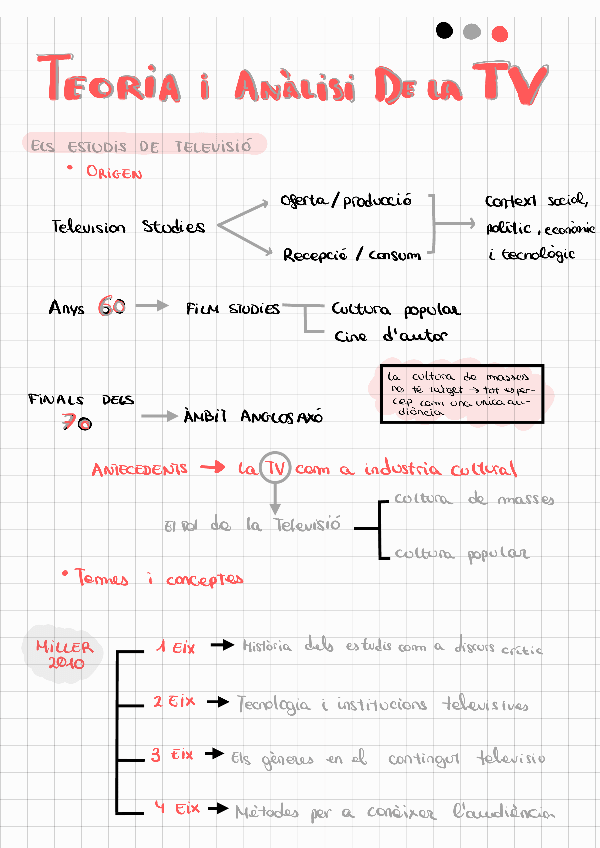 TEORIA i ANÀLISI DE LA TV
ELS ESTUDIS DE TELEVISIÓ
• ORIGEN
Television Studies
Oferta / producció
Recepció / consum
Context social,
polític, econòmic
i tecnològic
Anys 60
FILM STUDIES
Cultura popular
Cine d'autor
FINALS DELS
70
ÀMBIT ANGLOSAXÓ
La cultura de masses
no té target → tot es per-
cep com una unica au-
diència
ANTECEDENTS → La TV com a industria cultural
El rol de la Televisió
cultura de masses
cultura popular
• Temes i conceptes
MILLER
2010
1 EIX → Història dels estudis com a discurs crític
2 EIX → Tecnologia i institucions televisives
3 EIX → Els gèneres en el contingut televisio
4 EIX → Mètodes per a conèixer l'audiència